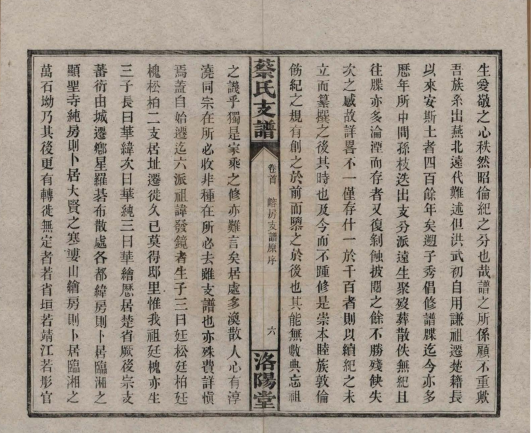 生愛敬之心秩然昭倫紀之分也哉譜之所係顧不重歟
吾族系出蔡北遠代難述但洪武初自用謙祖遷楚籍長
以來安斯土者四百餘年矣迴子秀倡修譜牒迄今亦多
歷年所中間孫枝迭出支分派遠生聚歿葬散佚無紀且
往牒亦多淪湮而存者又復剝蝕披閱之餘不勝殘缺失
次之感故詳畧不一僅存什一於千百者則以續紀之未
立而纂撰之後其時也及今而不踵修是崇本睦族敦倫
飭紀之規有創之於前而隳之於後也其能無數典忘祖
之譏乎獨是家乘之修亦難言矣居處多渙散人心有淳
澆同宗在所必收非種在所必去雖支譜也亦殊費詳愼
焉蓋自始遷迄六派祖諱發鏡者生子三曰廷松廷柏廷
槐松柏二支居址遷徙久已莫得耶里惟我祖廷槐亦生
三子長曰華緯次日華純三曰華繪歷居楚省厥後宗支
蕃衍由城遷鄉星羅碁布散處各都緯房則卜居臨湘之
顯聖寺純房則卜居大賢之寒婁山繪房則卜居臨湘之
萬石坳乃其後更有轉徙無定者若省垣若靖江若彤官
蔡氏支譜
卷首
房支譜原序
六
洛陽堂